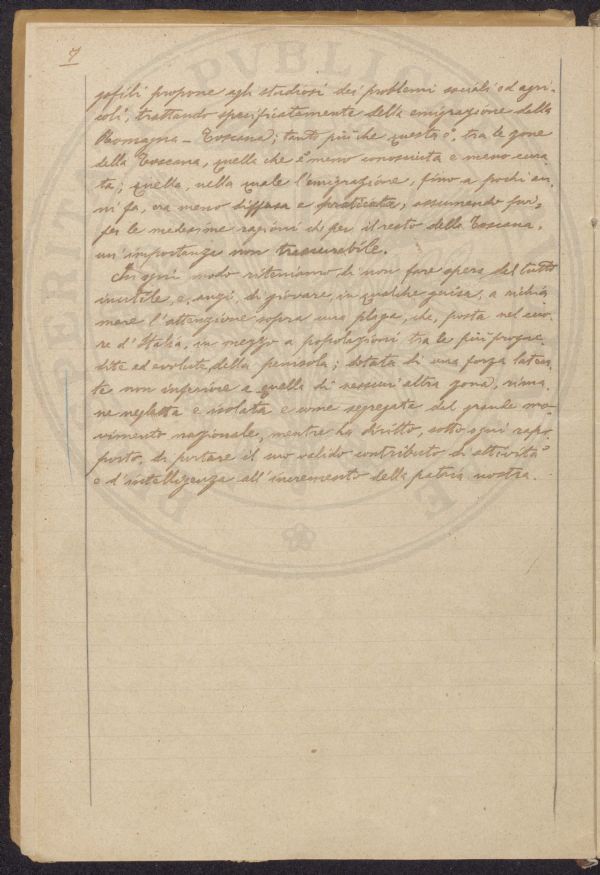 7
gofili propone agli studiosi dei problemi sociali ed agri-
coli, trattando specificatamente della emigrazione dalla
Romagna-Toscana; tanto più che questa è, tra le zone
della Toscana, quella che è meno conosciuta e meno cura-
ta; quella, nella quale l'emigrazione, fino a pochi an-
ni fa, era meno diffusa e praticata, assumendo pur,
per le medesime ragioni che per il resto della Toscana,
un'importanza non trascurabile.
In ogni modo riteniamo di non fare opera del tutto
inutile, e, anzi, di giovare, in qualche guisa, a richia
mare l'attenzione sopra una plaga, che, posta nel cuo-
re d'Italia, in mezzo a popolazioni tra le più progre
dite ed evolute della penisola; dotata di una forza laten-
te non inferiore a quella di nessun'altra zona, rima-
ne negletta e isolata e come segregata dal grande mo-
vimento nazionale, mentre ha diritto, sotto ogni rap-
porto, di portare il suo valido contributo di attività
e d'intelligenza all'incremento della patria nostra.
PVBLIC